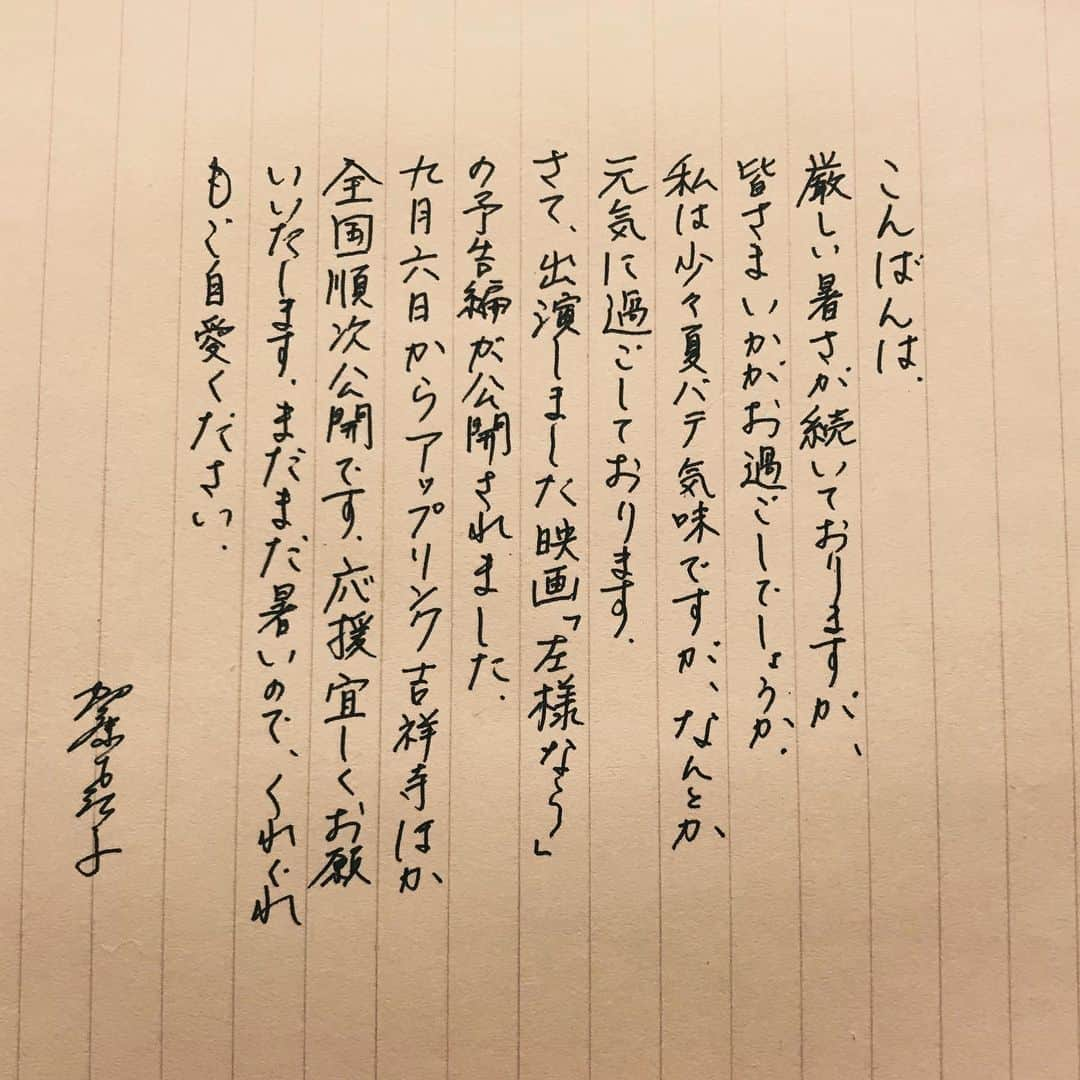 こんばんは.
厳しい暑さが続いておりますが、
皆さまいかがお過ごしでしょうか.
私は少々夏バテ気味ですが、なんとか
元気に過ごしております.
さて、出演しました映画「左様なら」
の予告編が公開されました.
九月六日からアップリンク吉祥寺ほか
全国順次公開です. 応援宜しくお願
いいたします. まだまだ暑いので、くれぐれ
もご自愛ください.